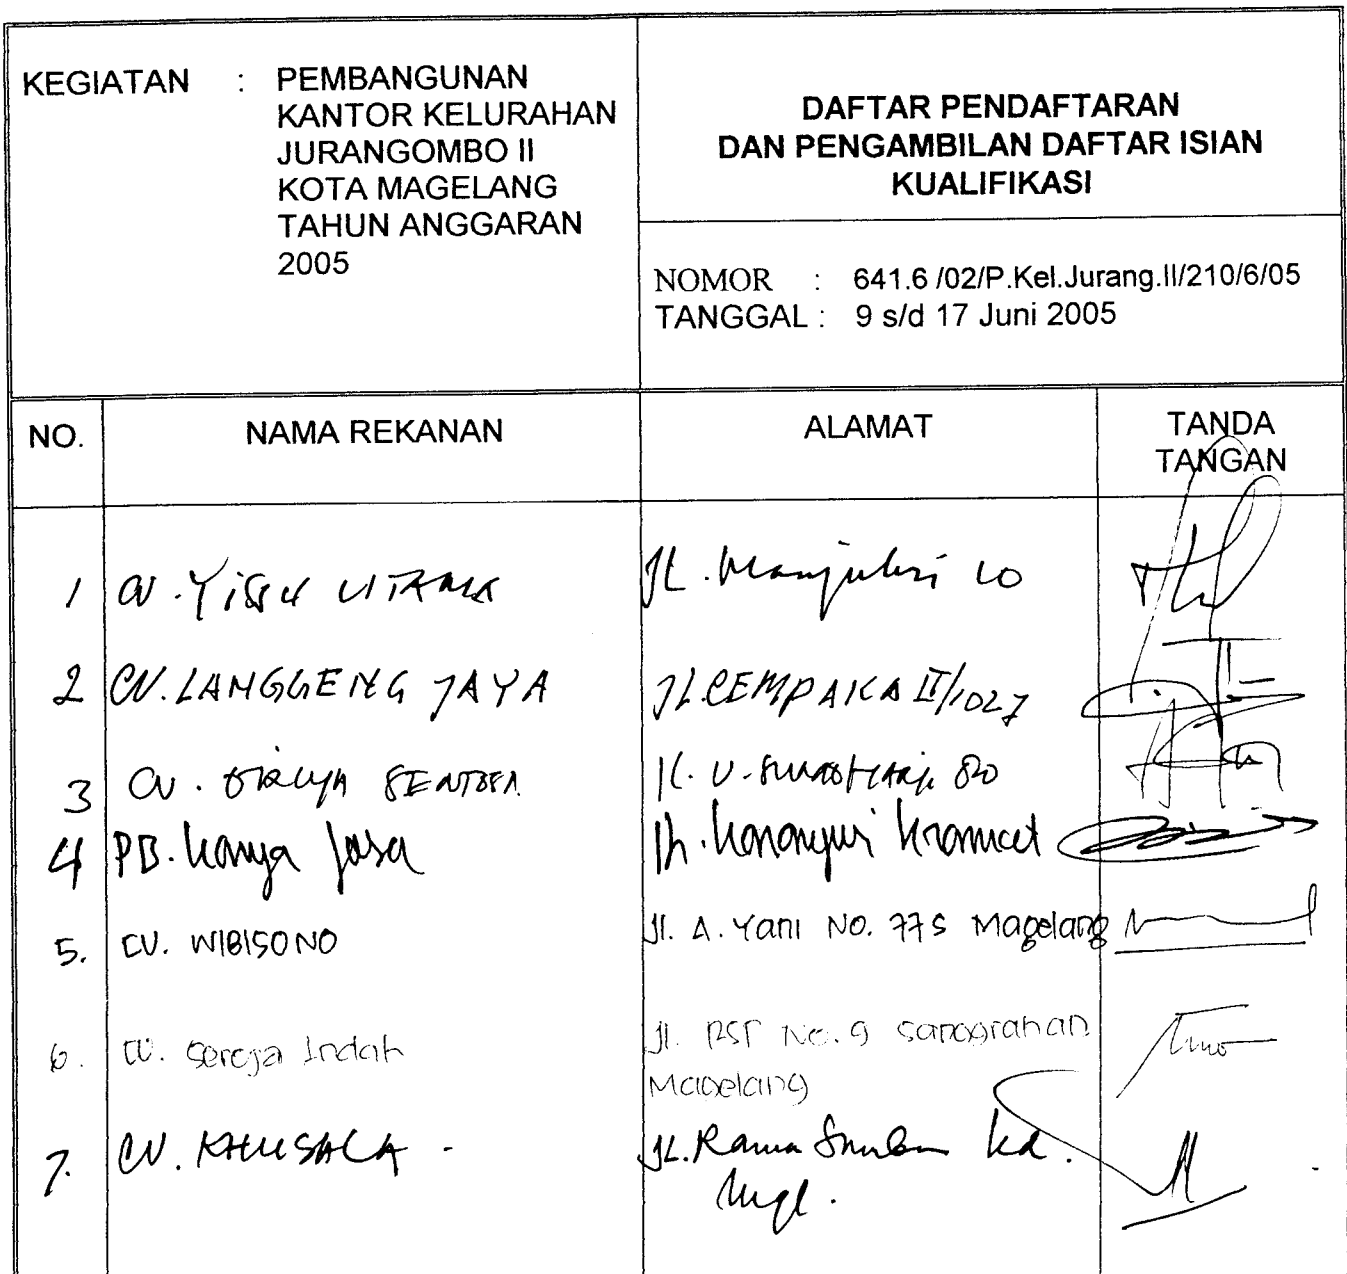 KEGIATAN : PEMBANGUNAN
KANTOR KELURAHAN
JURANGOMBO II
KOTA MAGELANG
TAHUN ANGGARAN
2005
DAFTAR PENDAFTARAN
DAN PENGAMBILAN DAFTAR ISIAN
KUALIFIKASI
NOMOR : 641.6 /02/P.Kel.Jurang.II/210/6/05
TANGGAL : 9 s/d 17 Juni 2005
NO. NAMA REKANAN ALAMAT TANDA
TANGAN
1 CV. UTAMA JL.
2 CV. LANGGENG JAYA JL. CEMPAKA II/1027
3 CV. SENTOSA Jl.
4 PB. Karya Jasa Jln. Kramat
5. CV. WIBISONO Jl. A. Yani No. 775 Magelang
6. CV. Seroja Indah Jl. RSP No. 9 Sanggrahan
Magelang
7. CV. KHUSALA - JL. Rama
Mgl.